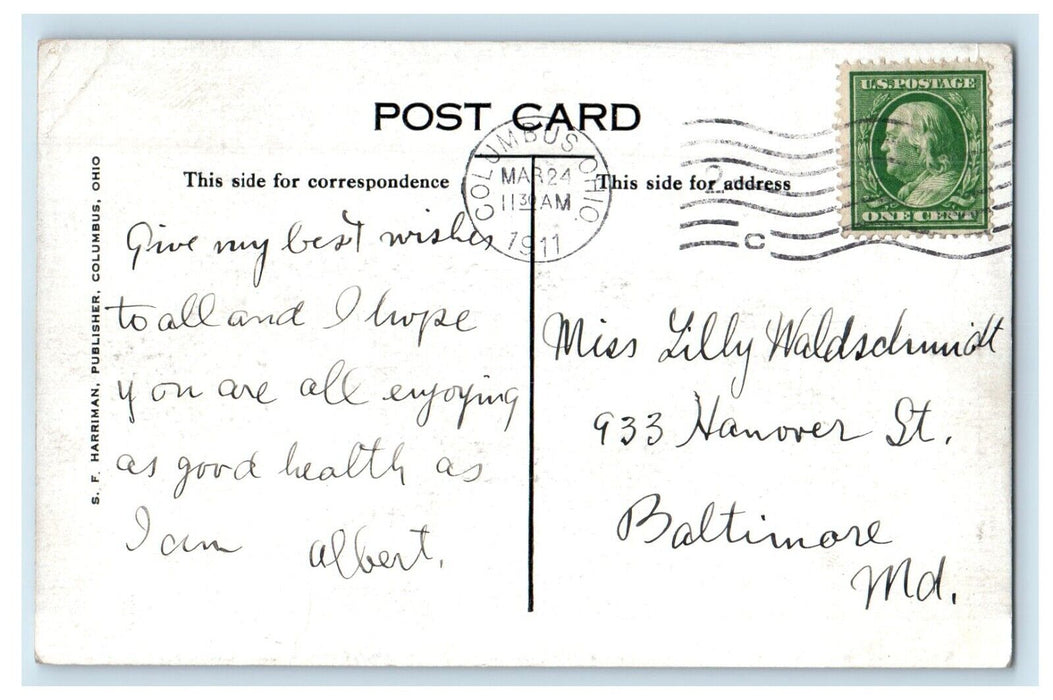 POST CARD
U.S. POSTAGE
ONE CENT
COLUMBUS OHIO
MAR 24
11 30 AM
1911
2
C
This side for correspondence
This side for address
Give my best wishes
to all and I hope
you are all enjoying
as good health as
I am Albert.
Miss Lilly Waldschmidt
933 Hanover St.
Baltimore
Md.
S. F. HARRIMAN, PUBLISHER, COLUMBUS, OHIO